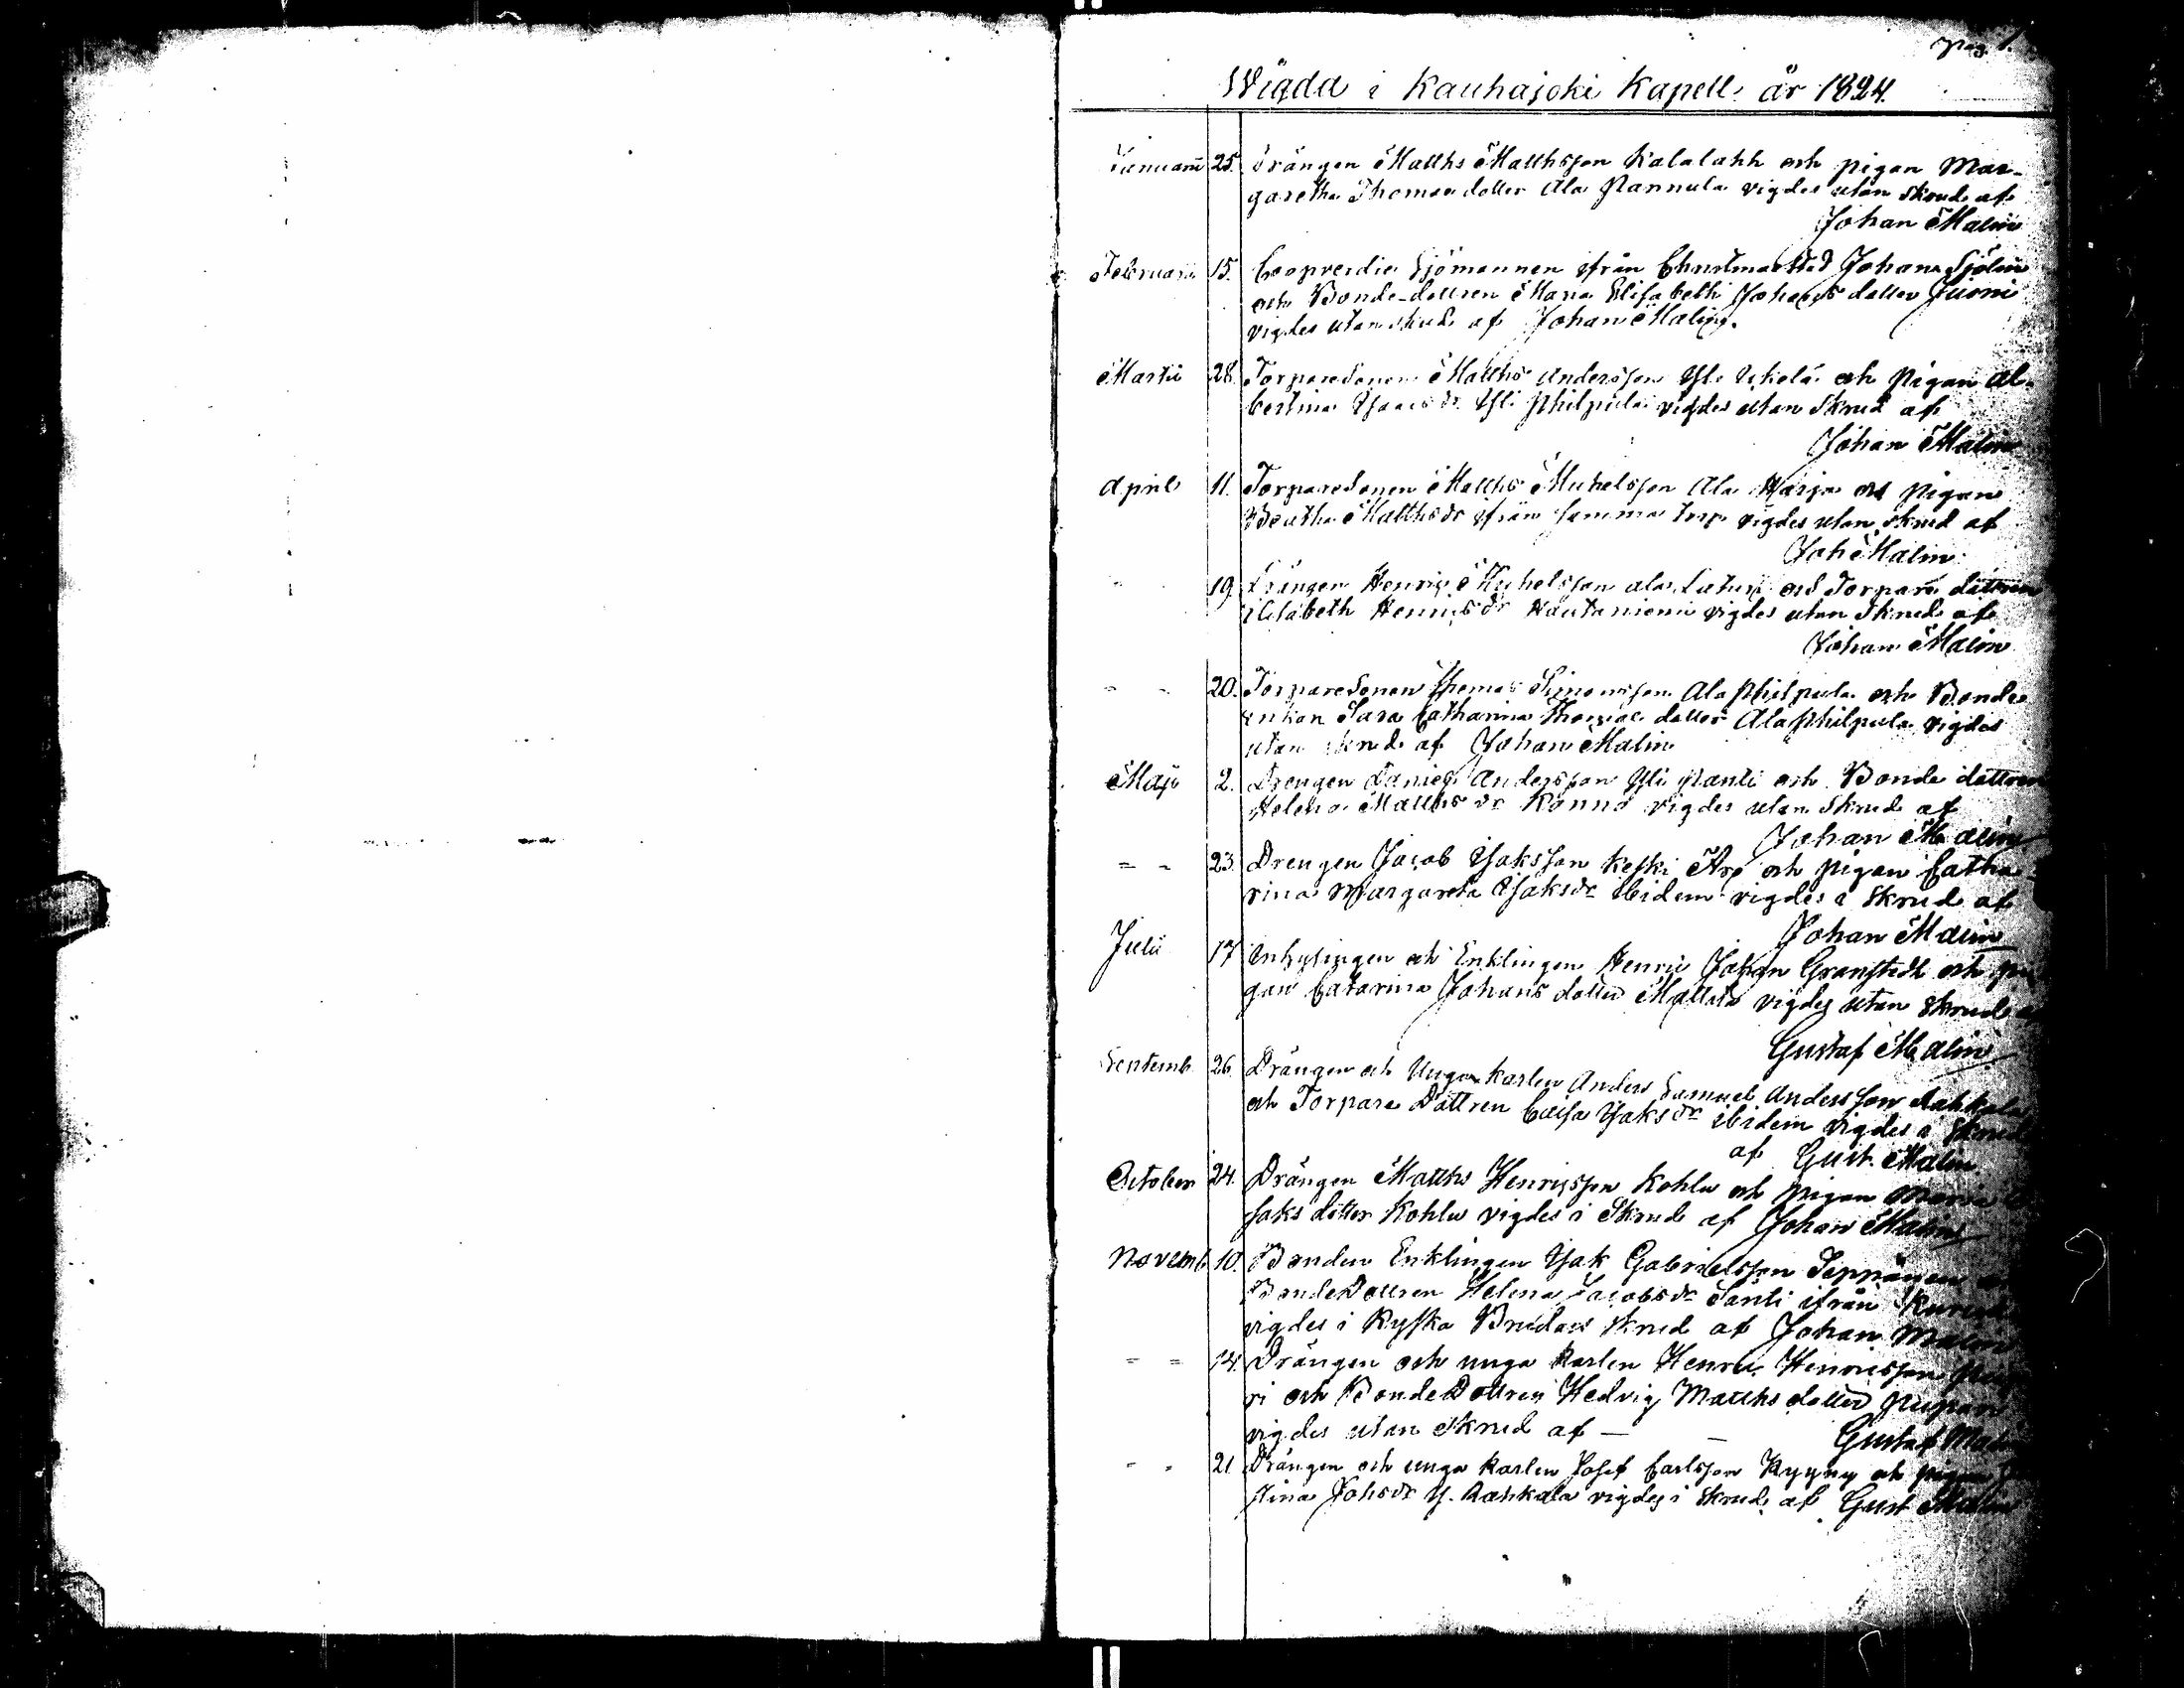 pag. 1.
Wigda i Kauhajoki Kapell år 1824.
Januarii 25. Drängen Matths Matthsson Kalalahti och pigan Mar-
garetha Thomae dotter Ala Pannula vigdes utan skrud af
Johan Malin
Februarii 15. Coopverdie Sjömannen ifrån Christinaestad Johan Sjölin
och Bonde-dottren Maria Elisabeth Johans dotter Juoni
vigdes utan skrud af Johan Malin.
Martii 28. Torparesonen Matths Andersson Yli och Pigan Al-
bertina Isaacs dr Yli Philpula vigdes utan Skrud af
Johan Malin
April 11. Torparesonen Matths Michelsson Ala Harja och pigan
Beatha Matthsdr ifrån samma torp vigdes utan skrud af
Joh Malin
19. Drängen Henric Michelsson ala och Torpare dottren
Elisabeth Henricsdr Hautaniemi vigdes utan Skrud af
Johan Malin
- - 20. Torparesonen Thomas Simonsson Ala Philpula och Bonde
enkan Sara Catharina Thomae dotter Ala Philpula vigdes
utan skrud af Johan Malin
Maji 2. Drengen Daniel Andersson Yli Panti och Bonde dottren
Helena Matths dr Konno vigdes utan Skrud af
Johan Malin
= - 23. Drengen Jacob Isaksson Keski Äro och pigan Catha-
rina Margareta Isaksdr ibidem vigdes i Skrud af
Johan Malin
Julii 17 Inhysingen och Enklingen Henric Johan Granstedt och pi
gan Catarina Johans dotter Mattila vigdes utan skrud
Gustaf Malin
Septemb. 26. Drängen och Unga karlen Anders Samuel Andersson Aahkala
och Torpare Dottren Caisa Isaksdr ibidem vigdes i Skrud
af Gust. Malin
October 24. Drängen Matths Henricsson Kohlu och pigan Maria
saks dotter Kohlu vigdes i Skrud af Johan Malin
Novemb. 10. Bonden Enklingen Isak Gabrielsson Seppänen
BondeDottren Helena Jacobsdr Santi ifrån
vigdes i Ryska Brudars skrud af Johan Malin
= = 14. Drängen och unga karlen Henric Henricsson
ri och BondeDottren Hedvig Matths dotter
vigdes utan Skrud af — — Gustaf Malin
- - 21 Drängen och unga karlen Josef Carlsson Kyyny och pigan
stina Johsdr Y. Aahkala vigdes i skrud af Gust Malin